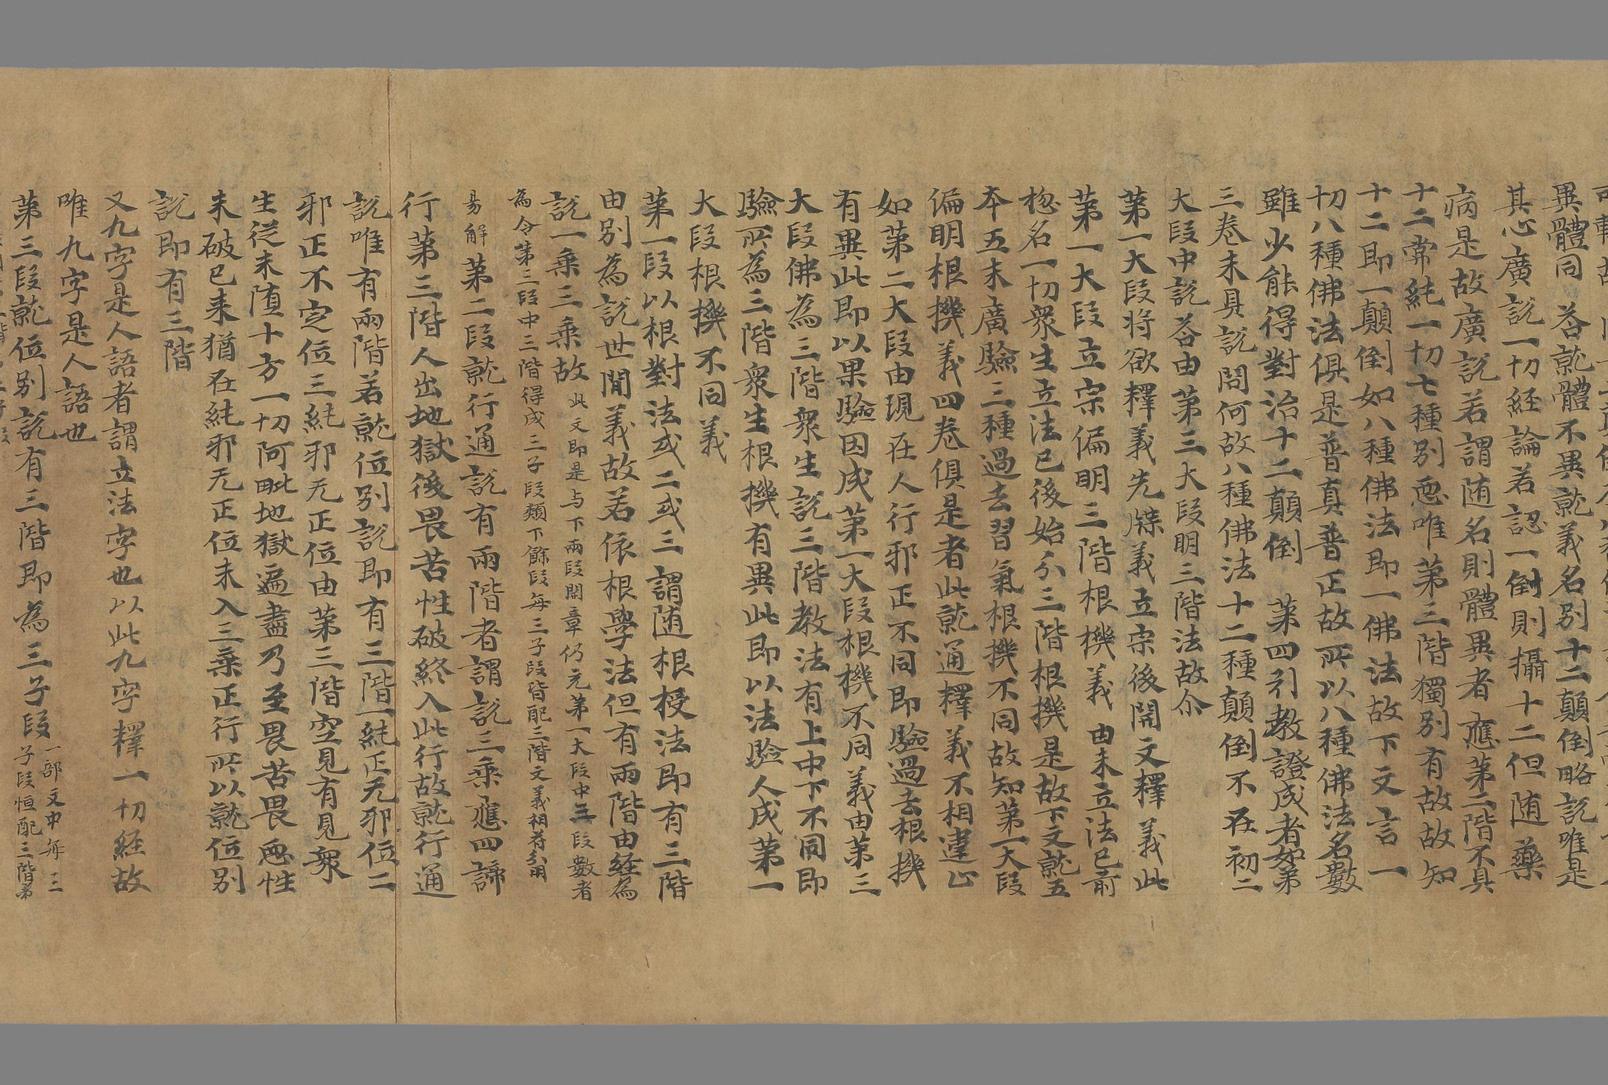 異體同　荅就體不異就義名別十二顛倒略說唯是
其心廣說一切経論若認一倒則攝十二但随藥
病是故廣說若謂随名則體異者應第二階不具
十二常純一切七種別惡唯第三階獨別有故故知
十二即一顛倒如八種佛法即一佛法故下文言一
切八種佛法俱是普真普正故所以八種佛法名數
雖少能得對治十二顛倒　第四引教證成者如第
三卷末具說問何故八種佛法十二種顛倒不在初二
大段中說荅由第三大段明三階法故尒
第一大段將欲釋義先牒義立宗後開文釋義此
第一大段立宗偏明三階根機義　由未立法已前
揔名一切衆生立法已後始分三階根機是故下文就五
本五末廣驗三種過去習氣根機不同故知第一大段
偏明根機義四卷俱是者此就通釋義不相違山
如第二大段由現在人行邪正不同即驗過去根機
有異此即以果驗因成第一大段根機不同義由第三
大段佛為三階衆生說三階教法有上中下不同即
驗所為三階衆生根機有異此即以法驗人成第一
大段根機不同義
第一段以根對法或二或三謂随根授法即有三階
由別為說世間義故若依根學法但有兩階由経為
說一乘三乘故此文即是与下兩段開章仍元第一大段中三段數者
為令第三段中三階得成三子段類下餘段每三子段皆配三階文義相符
易解　第二段就行通說有兩階者謂說三乘應四諦
行第三階人出地獄後畏苦性破終入此行故就行通
說唯有兩階若就位別說即有三階一純正无邪位二
邪正不定位三純邪无正位由第三階空見有見衆
生從未堕十方一切阿毗地獄遍盡乃至畏苦畏惡性
未破已来猶在純邪无正位未入三乘正行所以就位別
說即有三階
又九字是人語者謂立法字也以此九字釋一切経故
唯九字是人語也
第三段就位別說有三階即為三子段一部文中每三
子段恒配三階第